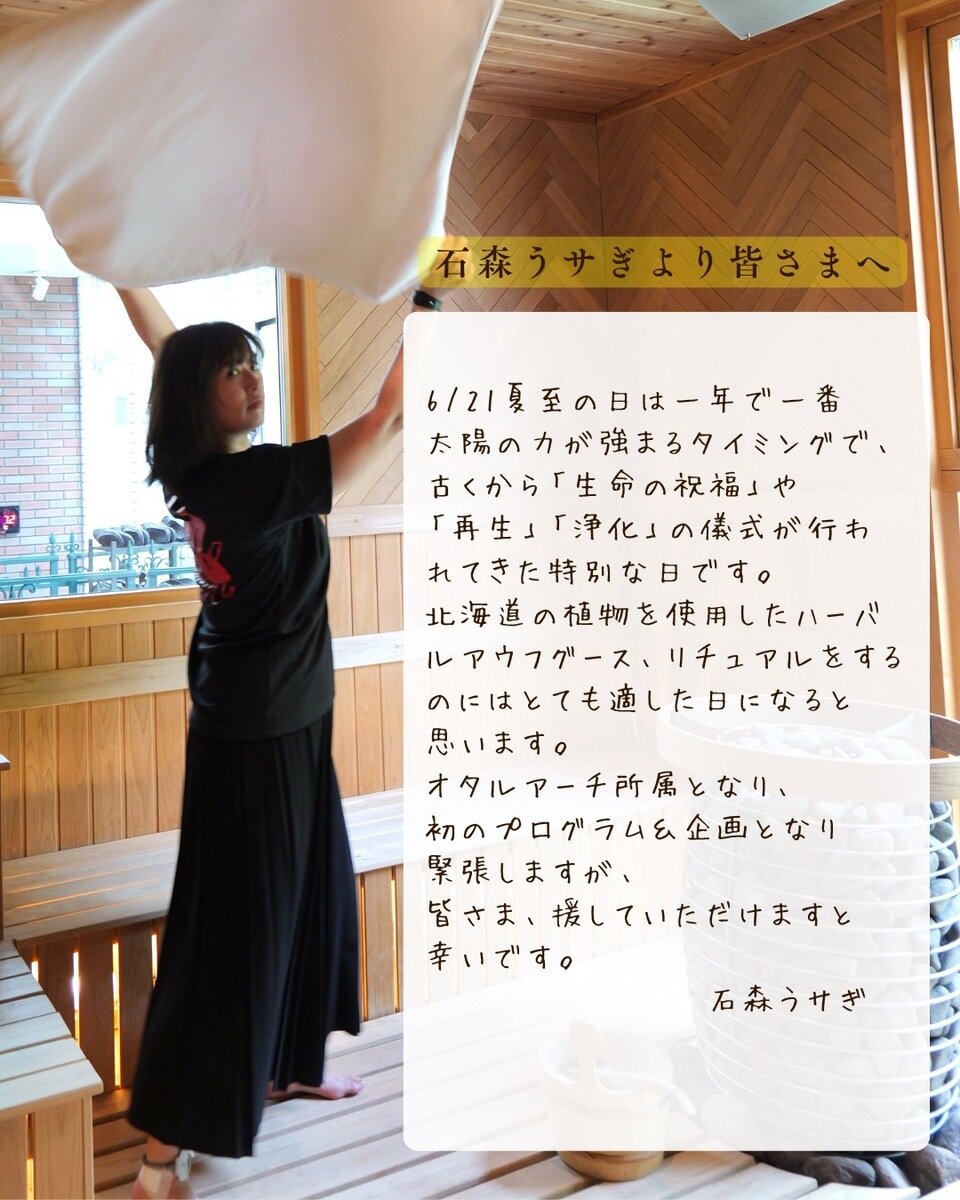 石森うサぎより皆さまへ
6/21夏至の日は一年で一番
太陽の力が強まるタイミングで、
古くから「生命の祝福」や
「再生」「浄化」の儀式が行わ
れてきた特別な日です。
北海道の植物を使用したハーバ
ルアウフグース、リチュアルをする
のにはとても適した日になると
思います。
オタルアーチ所属となり、
初のプログラム&企画となり
緊張しますが、
皆さま、援していただけますと
幸いです。
石森うサぎ
72